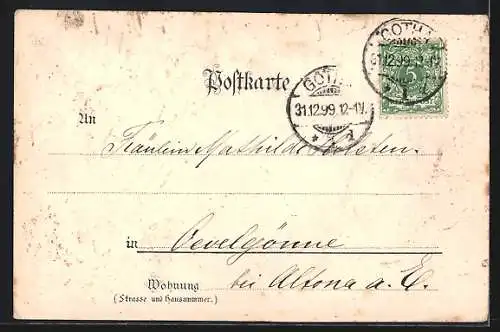 GOTHA
31.12.99.12-1V.
* 1 d
5
Postkarte
GOTHA
31.12.99.12-1V.
An
Fräulein Mathilde
in Oevelgönne
Wohnung bei Altona a. E.
(Strasse und Hausnummer.)